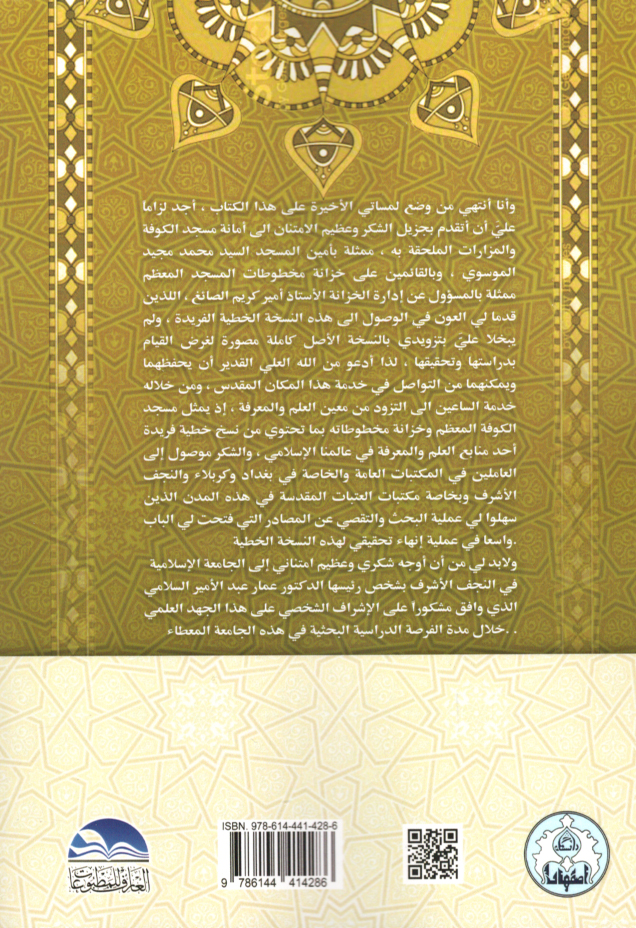 وأنا أنتهي من وضع لمساتي الأخيرة على هذا الكتاب ، أجد لزاما
عليّ أن أتقدم بجزيل الشكر وعظيم الامتنان الى أمانة مسجد الكوفة
والمزارات الملحقة به ، ممثلة بأمين المسجد السيد محمد مجيد
الموسوي ، وبالقائمين على خزانة مخطوطات المسجد المعظم
ممثلة بالمسؤول عن إدارة الخزانة الأستاذ أمير كريم الصائغ ، اللذين
قدما لي العون في الوصول الى هذه النسخة الخطية الفريدة ، ولم
يبخلا عليّ بتزويدي بالنسخة الأصل كاملة مصورة لغرض القيام
بدراستها وتحقيقها ، لذا أدعو من الله العلي القدير أن يحفظهما
ويمكنهما من التواصل في خدمة هذا المكان المقدس ، ومن خلاله
خدمة الساعين الى التزود من معين العلم والمعرفة ، إذ يمثل مسجد
الكوفة المعظم وخزانة مخطوطاته بما تحتوي من نسخ خطية فريدة
أحد منابع العلم والمعرفة في عالمنا الإسلامي ، والشكر موصول إلى
العاملين في المكتبات العامة والخاصة في بغداد وكربلاء والنجف
الأشرف وبخاصة مكتبات العتبات المقدسة في هذه المدن الذين
سهلوا لي عملية البحث والتقصي عن المصادر التي فتحت لي الباب
.واسعا في عملية إنهاء تحقيقي لهذه النسخة الخطية
ولابد لي من أن أوجه شكري وعظيم امتناني إلى الجامعة الإسلامية
في النجف الأشرف بشخص رئيسها الدكتور عمار عبد الأمير السلامي
الذي وافق مشكورا على الإشراف الشخصي على هذا الجهد العلمي
. .خلال مدة الفرصة الدراسية البحثية في هذه الجامعة المعطاء
ISBN. 978-614-441-428-6
9 786144 414286
العارف للمطبوعات